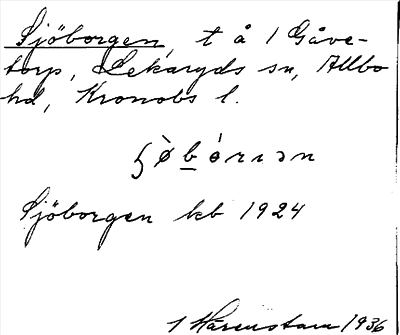 Sjöborgen, t å 1 Gåve-
torp, Lekaryds sn, Allbo
hd, Kronobs l.
ʂø̀bórıɜn
Sjöborgen kb 1924
1 Harenstam 1936